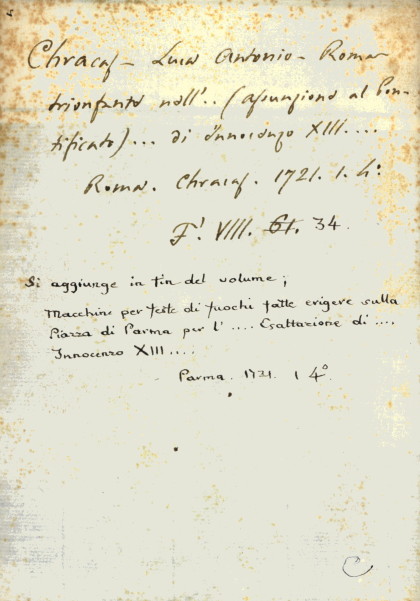 Chracas - Luca Antonio - Roma
trionfante nell'.. (assunzione al Pon-
tificato)... di Innocenzo XIII....
Roma. Chracas. 1721. 1. 4°
F'. VIII. 61. 34.
Si aggiunge in fin del volume;
Macchine per feste di fuochi fatte erigere sulla
Piazza di Parma per l' .... Esaltazione di ....
Innocenzo XIII....
Parma. 1721. 1 4°